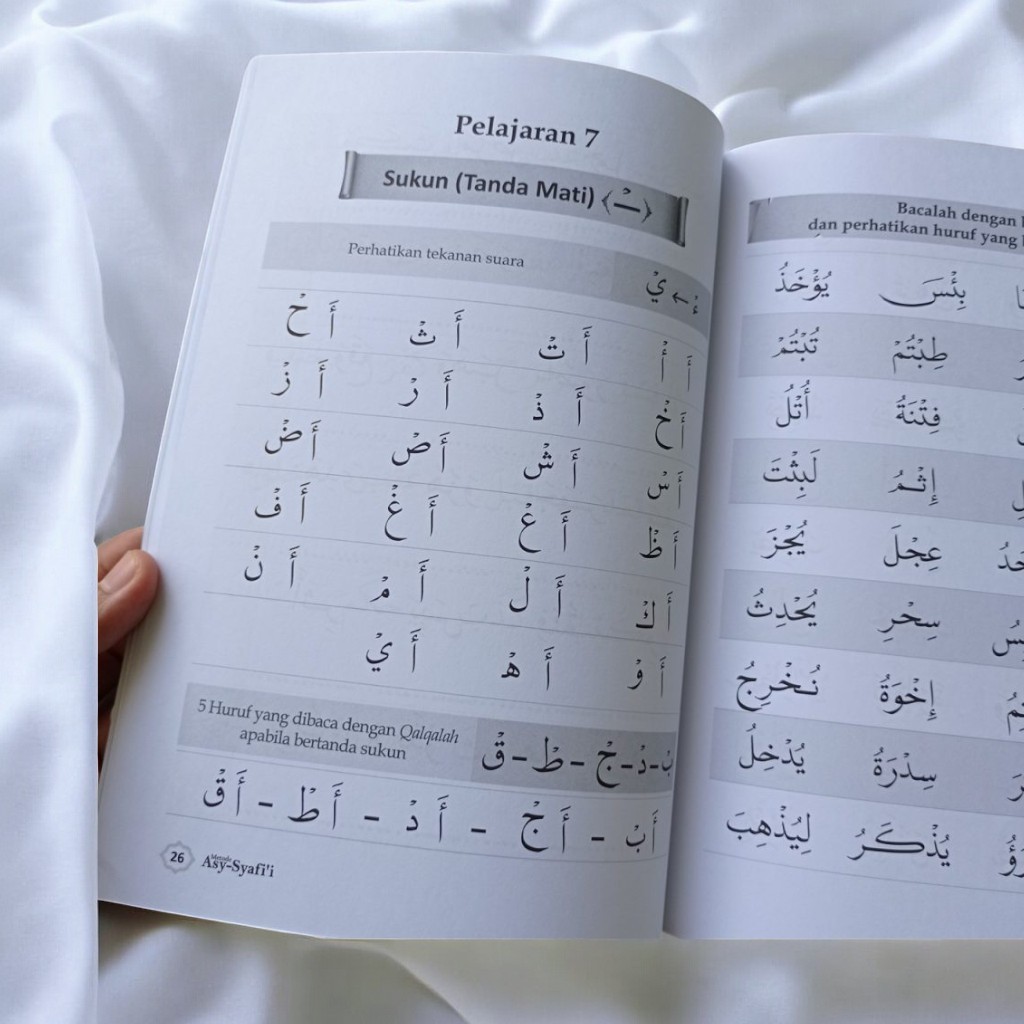 Pelajaran 7
Sukun (Tanda Mati) ﴿ـْـ﴾
Perhatikan tekanan suara
ءْ ← يْ
أَ أْ أَ تْ أَ ثْ أَ حْ
أَ خْ أَ ذْ أَ رْ أَ زْ
أَ سْ أَ شْ أَ صْ أَ ضْ
أَ ظْ أَ عْ أَ غْ أَ فْ
أَ كْ أَ لْ أَ مْ أَ نْ
أَ وْ أَ هْ أَ يْ
5 Huruf yang dibaca dengan Qalqalah
apabila bertanda sukun
بْ-دْ-جْ-طْ-قْ
أَ بْ - أَ جْ - أَ دْ - أَ طْ - أَ قْ
26
Metode
Asy-Syafi'i
Bacalah dengan
dan perhatikan huruf yang
بِئْسَ يُؤْخَذُ
طِبْتُمْ تُبْتُمْ
فِتْنَةُ أُتْلُ
إِثْمُ لَبِثْتَ
عِجْلَ يُجْزَ
سِحْرِ يُحْدِثُ
إِخْوَةُ نُخْرِجُ
سِدْرَةُ يُدْخِلُ
يُذْكَرُ لِيُذْهِبَ